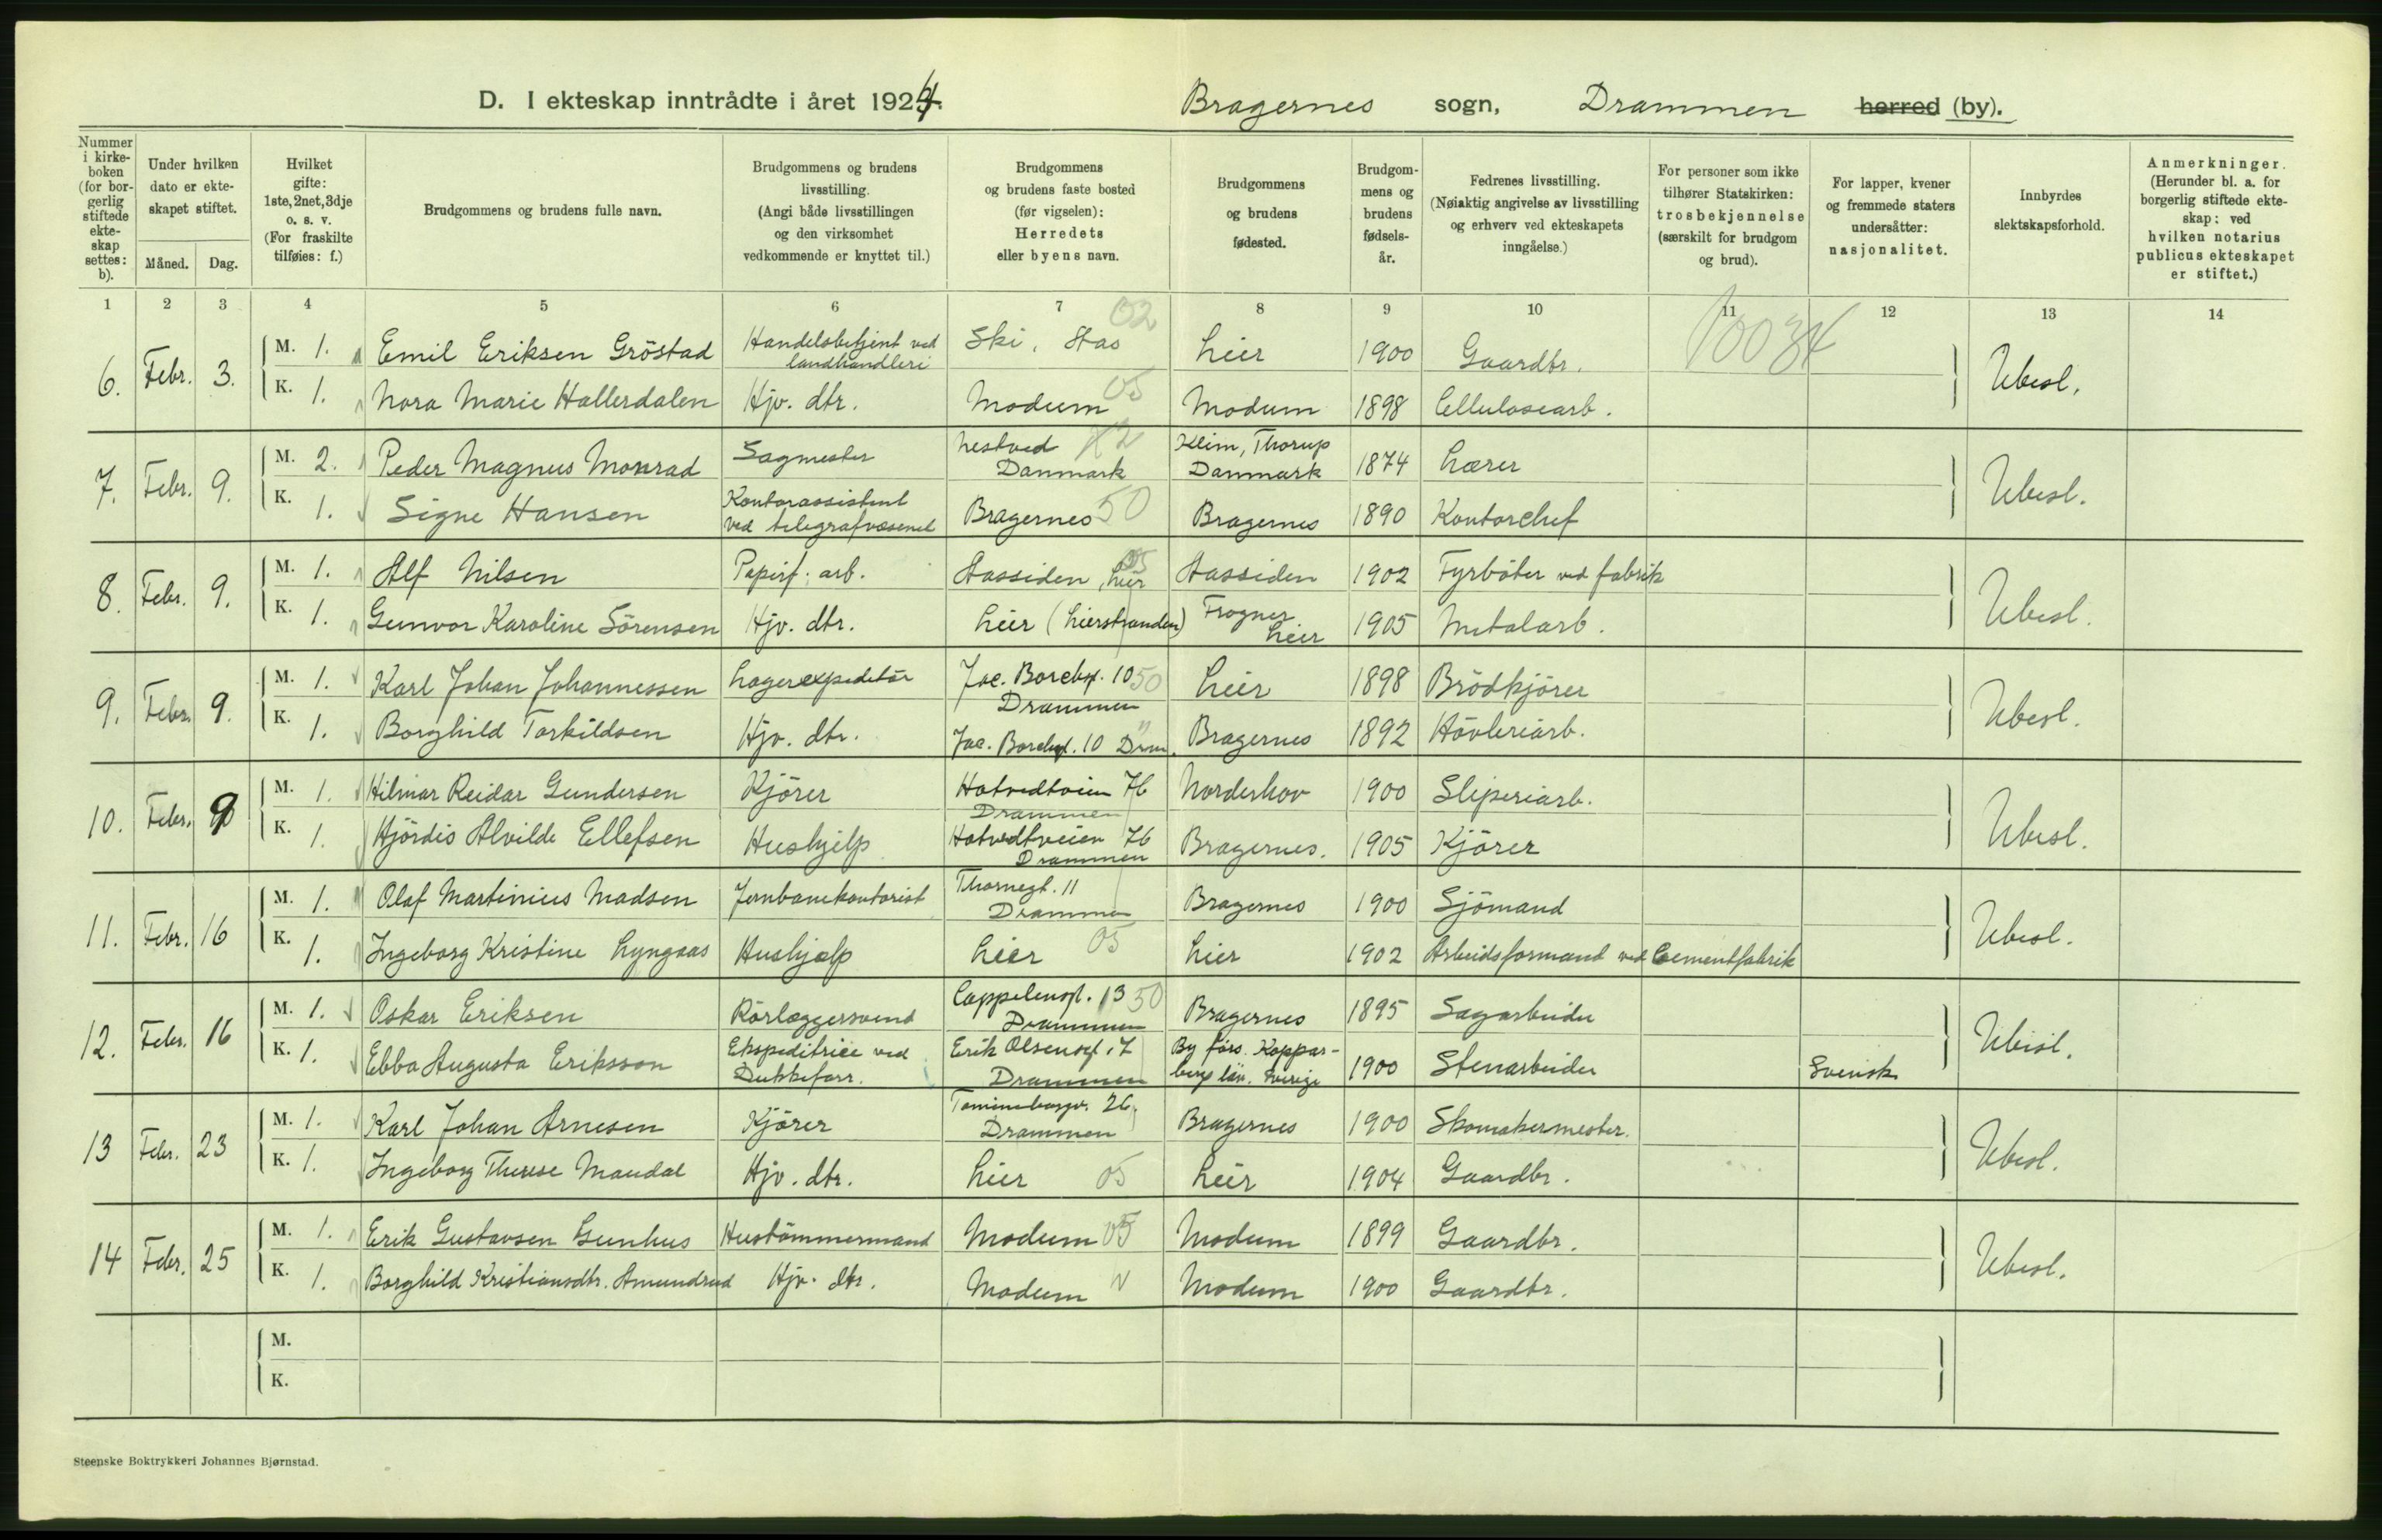 D. I ekteskap inntrådte i året 1924. Bragernes sogn, Drammen herred (by).
Nummer i kirkeboken (for borgerlig stiftede ekteskap settes: b).
Under hvilken dato er ekteskapet stiftet.
Måned. Dag.
Hvilket gifte: 1ste, 2net, 3dje o. s. v. (For fraskilte tilføies: f.)
Brudgommens og brudens fulle navn.
Brudgommens og brudens livsstilling. (Angi både livsstillingen og den virksomhet vedkommende er knyttet til.)
Brudgommens og brudens faste bosted (før vigselen): Herredets eller byens navn.
Brudgommens og brudens fødested.
Brudgommens og brudens fødselsår.
Fedrenes livsstilling. (Nøiaktig angivelse av livsstilling og erhverv ved ekteskapets inngåelse.)
For personer som ikke tilhører Statskirken: trosbekjennelse (særskilt for brudgom og brud).
For lapper, kvener og fremmede staters undersåtter: nasjonalitet.
Innbyrdes slektskapsforhold.
Anmerkninger. (Herunder bl. a. for borgerlig stiftede ekteskap: ved hvilken notarius publicus ekteskapet er stiftet.)
1 2 3 4 5 6 7 8 9 10 11 12 13 14
6. Febr. 3. M. 1. Emil Eriksen Gröstad Handelsbetjent ved landhandleri Ski, Skas 02 Lier 1900 Gaardbr. Ubesl.
K. 1. Nora Marie Hallerdalen Hjv. dtr. Modum 05 Modum 1898 Cellulosearb.
7. Febr. 9. M. 2. Peder Magnus Monrad Sagmester Nestved Danmark Klim, Thorup Danmark 1874 Lærer Ubesl.
K. 1. Signe Hansen Kontorassistent ved telegrafvæsenet Bragernes 50 Bragernes 1890 Kontorchef
8. Febr. 9. M. 1. Alf Nilsen Papirf. arb. Aassiden, Lier 05 Aassiden 1902 Fyrböter ved fabrik Ubesl.
K. 1. Gunvor Karoline Sörensen Hjv. dtr. Lier (Lierstranden) Frogner Lier 1905 Metalarb.
9. Febr. 9. M. 1. Karl Johan Johannessen Lagerexpeditör Jac. Borchgt. 10 50 Drammen Lier 1898 Brödkjörer Ubesl.
K. 1. Borghild Torkildsen Hjv. dtr. Jac. Borchgt. 10 Drm. Bragernes 1892 Hövleriarb.
10. Febr. 9 M. 1. Hilmar Reidar Gundersen Kjörer Hotvedtveien 76 Drammen Norderhov 1900 Sliperiarb. Ubesl.
K. 1. Hjördis Alvilde Ellefsen Hushjelp Hotvedtveien 76 Drammen Bragernes. 1905 Kjörer
11. Febr. 16 M. 1. Olaf Martinius Madsen Jernbanekontorist Thornegt. 11 Drammen Bragernes 1900 Sjömand Ubesl.
K. 1. Ingeborg Kristine Lyngaas Hushjælp Lier 05 Lier 1902 Arbeidsformand ved Cementfabrik
12. Febr. 16 M. 1. Oskar Eriksen Rörlæggersvend Cappelensgt. 13 50 Drammen Bragernes 1895 Sagarbeider Ubesl.
K. 1. Ebba Augusta Eriksson Ekspeditrice ved Dukkeforr. Erik Olsensgt. 7 Drammen By förs. Kopparbergs län. Sverige 1900 Stenarbeider Svensk
13 Febr. 23 M. 1. Karl Johan Arnesen Kjörer 26. Drammen Bragernes 1900 Skomakermester. Ubesl.
K. 1. Ingeborg Therese Mandal Hjv. dtr. Lier 05 Lier 1904 Gaardbr.
14 Febr. 25 M. 1. Erik Gustavsen Gunhus Hustömmermand Modum 05 Modum 1899 Gaardbr. Ubesl.
K. 1. Borghild Kristiansdtr. Amundrud Hjv. dtr. Modum Modum 1900 Gaardbr.
M.
K.
Steenske Boktrykkeri Johannes Bjørnstad.